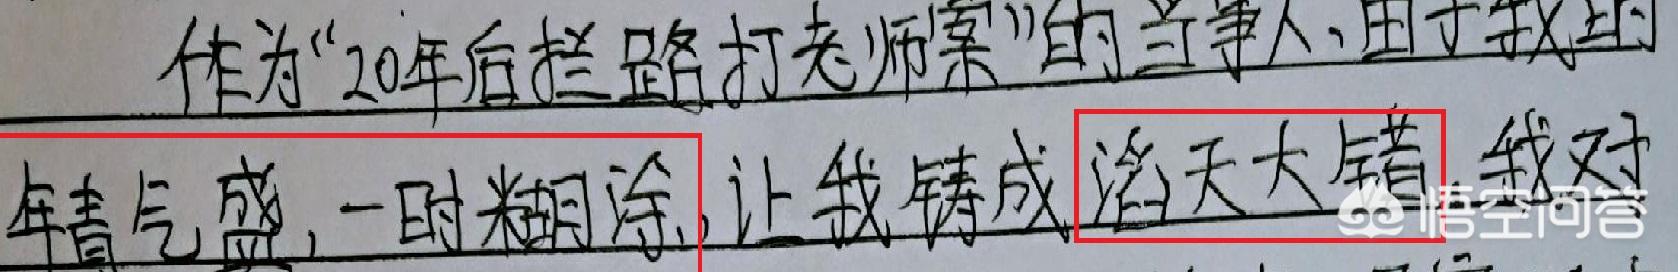 作为“20年后拦路打老师案”的当事人、由于我的
年青气盛,一时糊涂,让我铸成滔天大错,我对
悟空问答